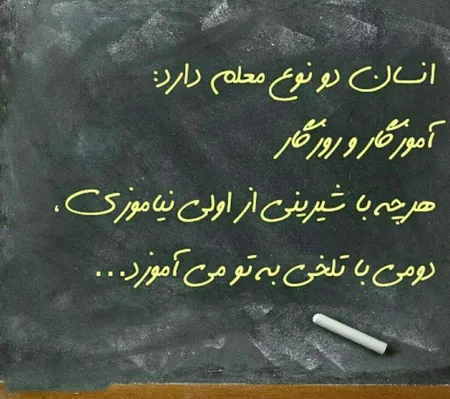 انسان دو نوع معلم دارد:
آموزگار و روزگار
هرچه با شیرینی از اولی نیاموزی،
دومی با تلخی به تو می آموزد...